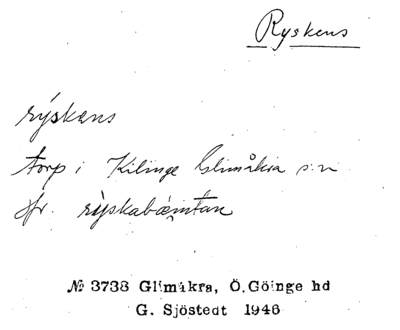 Ryskens
rýskens
torp i Kilinge Glimåkra s:n
jfr. rýskabämtan
№ 3738 Glimåkra, Ö. Göinge hd
G. Sjöstedt 1946